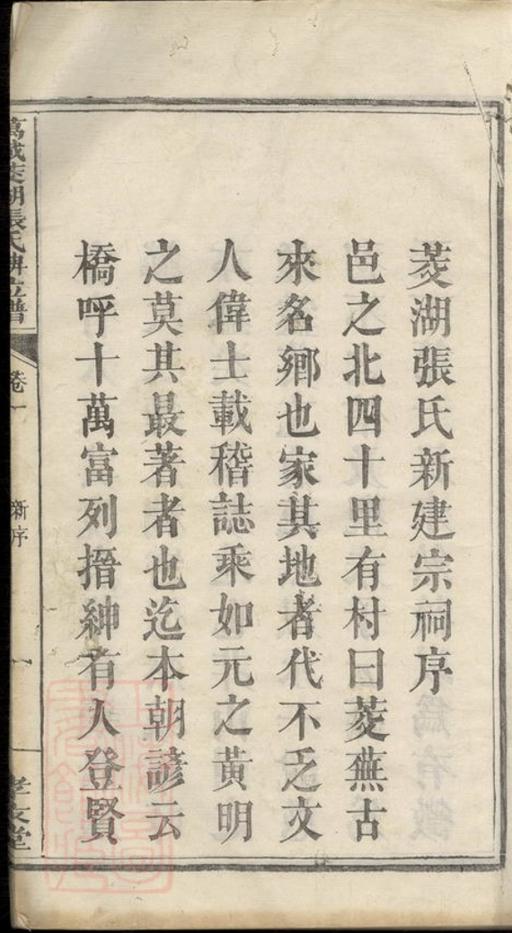 菱湖張氏新建宗祠序
邑之北四十里有村曰菱蕪古
來名鄉也家其地者代不乏文
人偉士載稽誌乘如元之黃明
之莫其最著者也迄本朝諺云
橋呼十萬富列搢紳有人登賢
張氏
譜
卷一
新序
一
堂